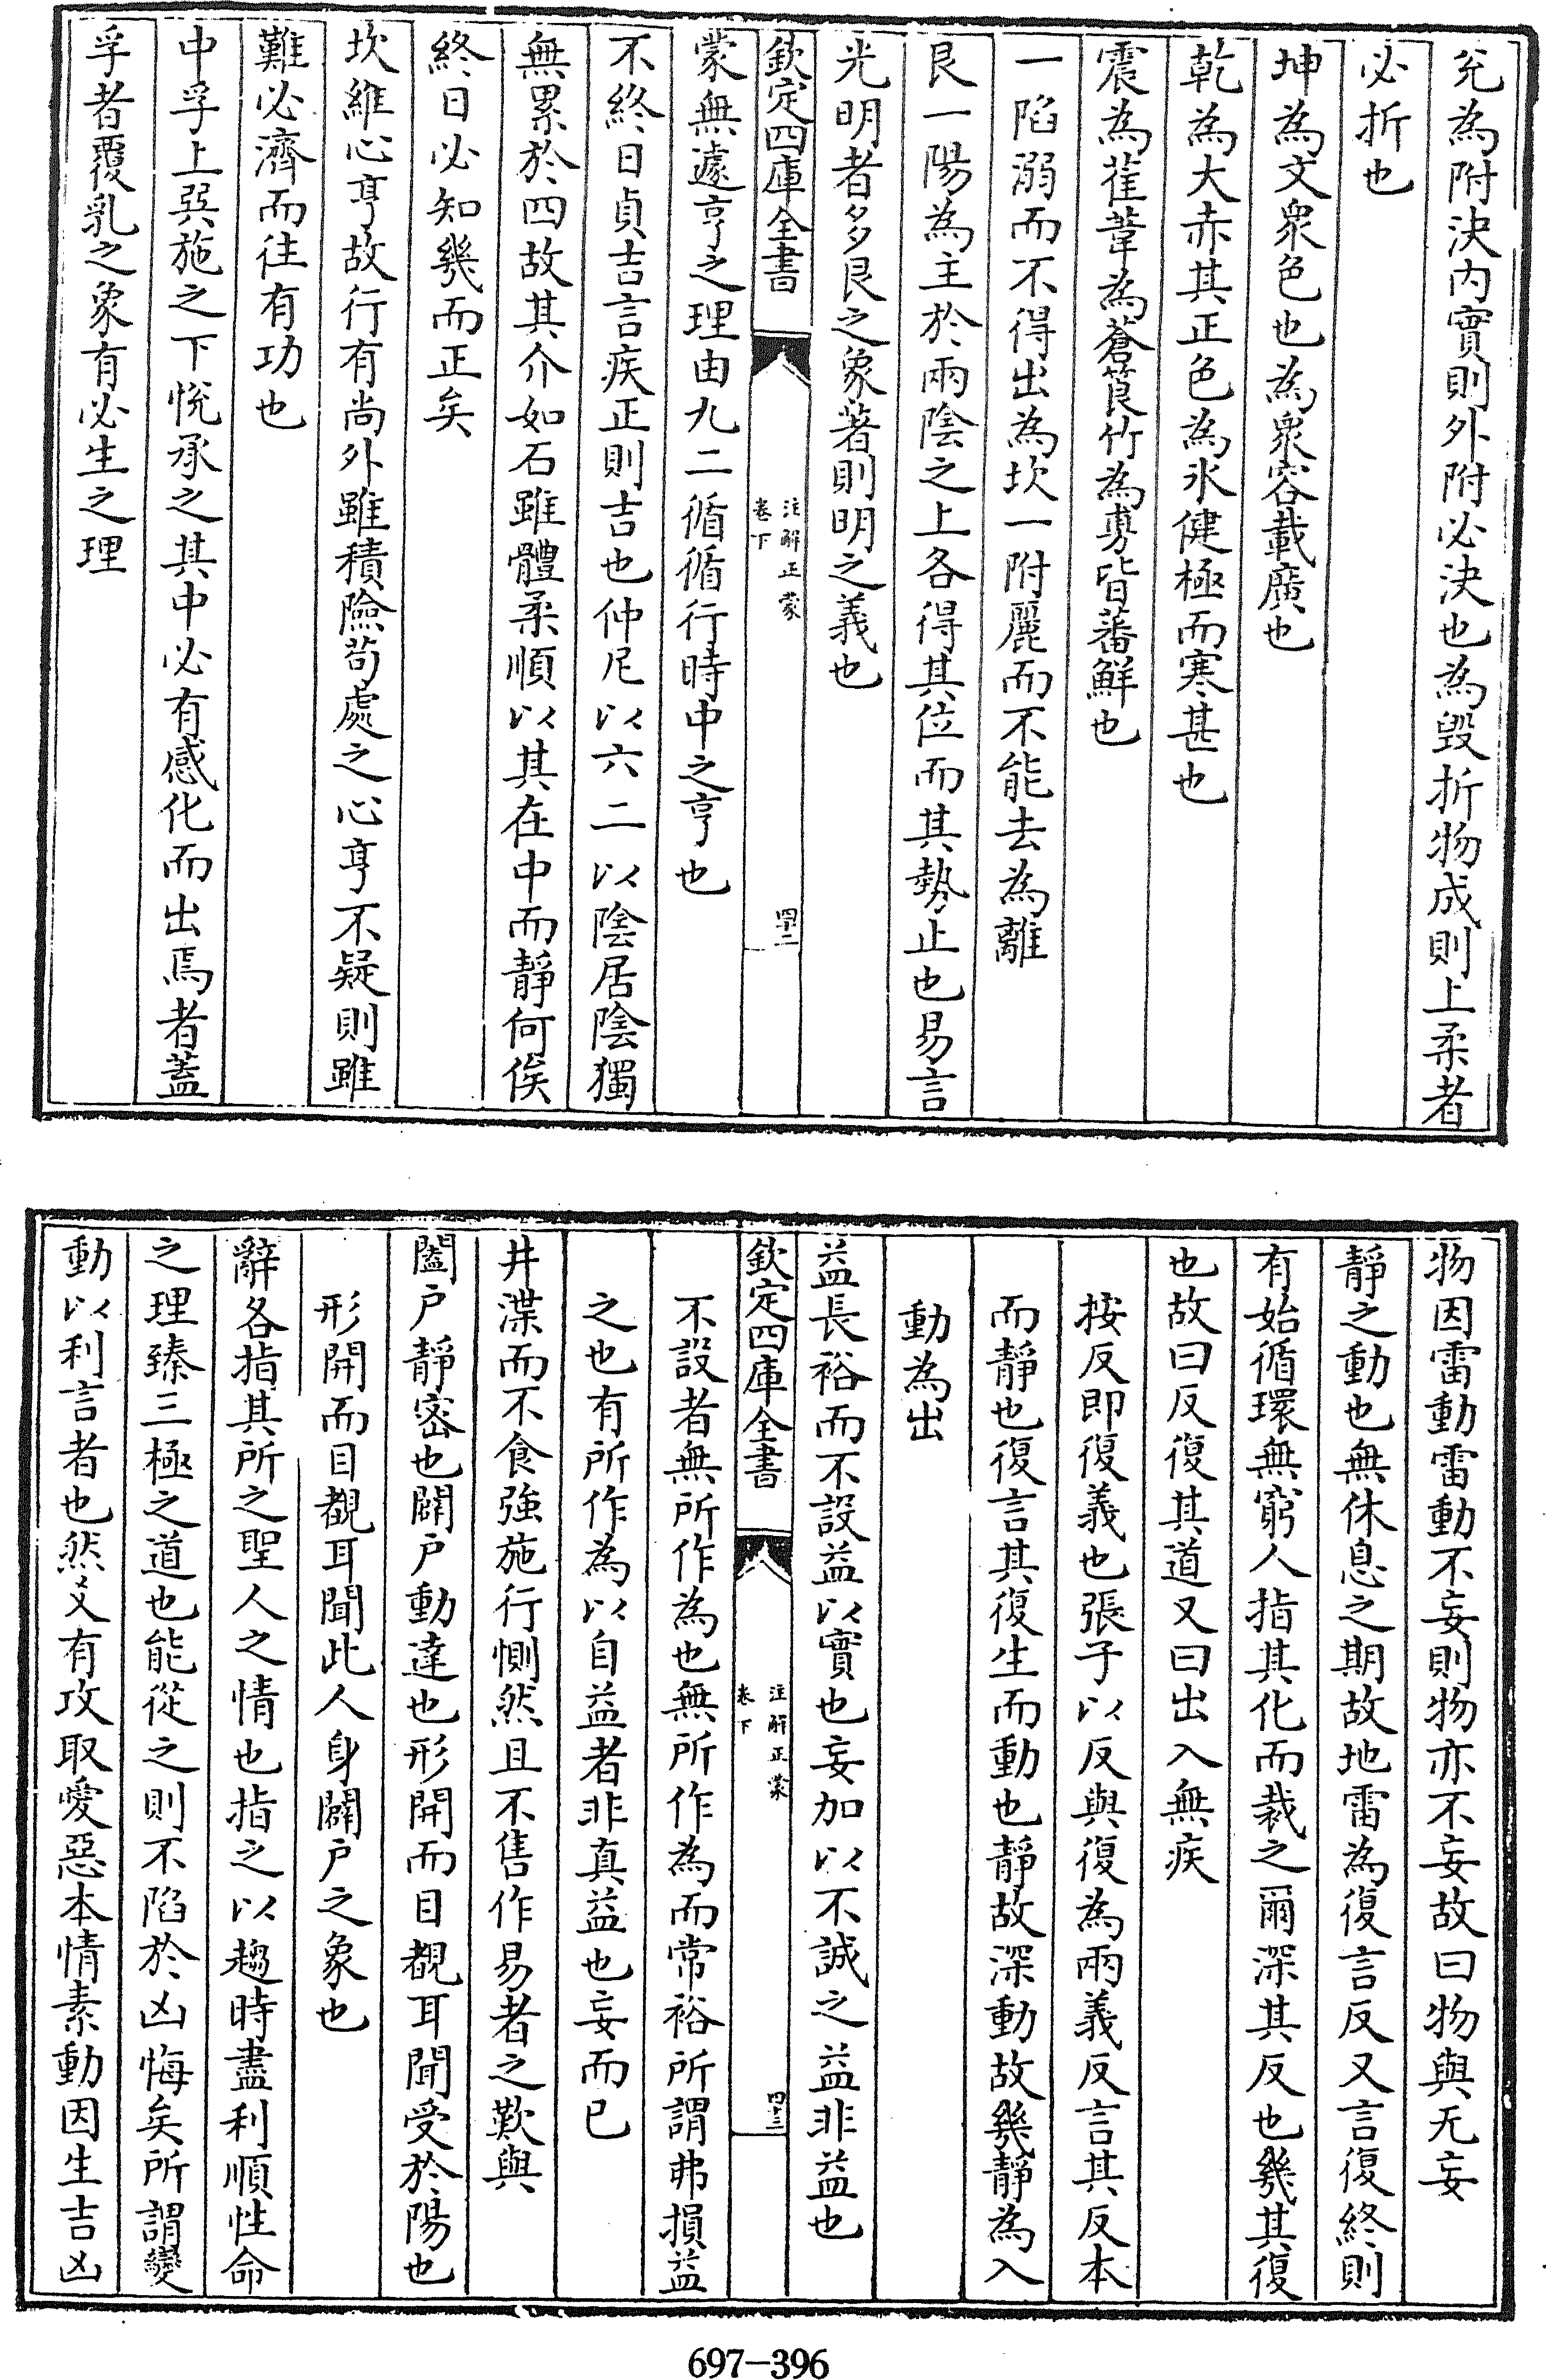 兊為附決内實則外附必決也為毁折物成則上柔者
必折也
坤為文衆色也為衆容載廣也
乾為大赤其正色為氷健極而寒甚也
震為萑葦為蒼筤竹為旉皆蕃鮮也
一陷溺而不得出為坎一附麗而不能去為離
艮一陽為主於兩陰之上各得其位而其勢止也易言
光明者多艮之象著則明之義也
欽定四庫全書
注解正蒙
卷下
四十二
蒙無遽亨之理由九二循循行時中之亨也
不終日貞吉言疾正則吉也仲尼以六二以陰居陰獨
無累於四故其介如石雖體柔順以其在中而靜何俟
終日必知幾而正矣
坎維心亨故行有尚外雖積險苟處之心亨不疑則雖
難必濟而往有功也
中孚上巽施之下悅承之其中必有感化而出焉者蓋
孚者覆乳之象有必生之理
物因雷動雷動不妄則物亦不妄故曰物與无妄
靜之動也無休息之期故地雷為復言反又言復終則
有始循環無窮人指其化而裁之爾深其反也幾其復
也故曰反復其道又曰出入無疾
按反即復義也張子以反與復為兩義反言其反本
而靜也復言其復生而動也靜故深動故幾靜為入
動為出
益長裕而不設益以實也妄加以不誠之益非益也
欽定四庫全書
注解正蒙
卷下
四十三
不設者無所作為也無所作為而常裕所謂弗損益
之也有所作為以自益者非真益也妄而已
井渫而不食強施行惻然且不售作易者之歎與
闔戶靜密也闢戶動達也形開而目覩耳聞受於陽也
形開而目覩耳聞此人身闢戶之象也
辭各指其所之聖人之情也指之以趨時盡利順性命
之理臻三極之道也能從之則不陷於凶悔矣所謂變
動以利言者也然爻有攻取愛惡本情素動因生吉凶
697-396